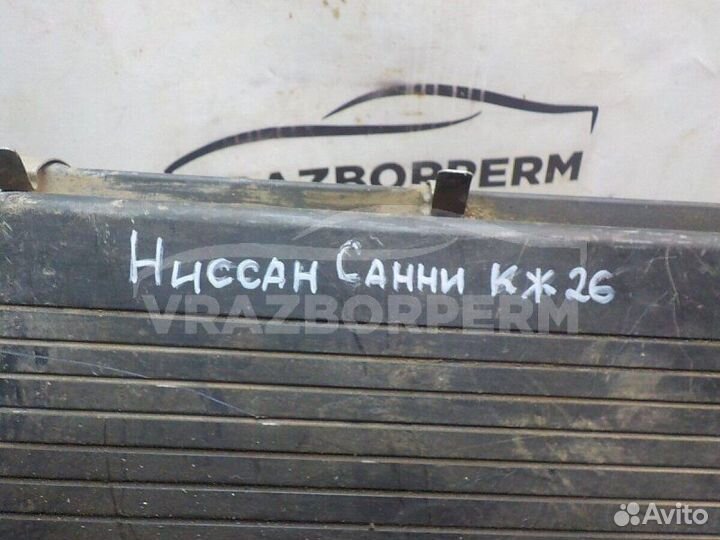 VRAZBORPERM
НИССАН САННИ КЖ 26
VRAZBORPERM
Avito